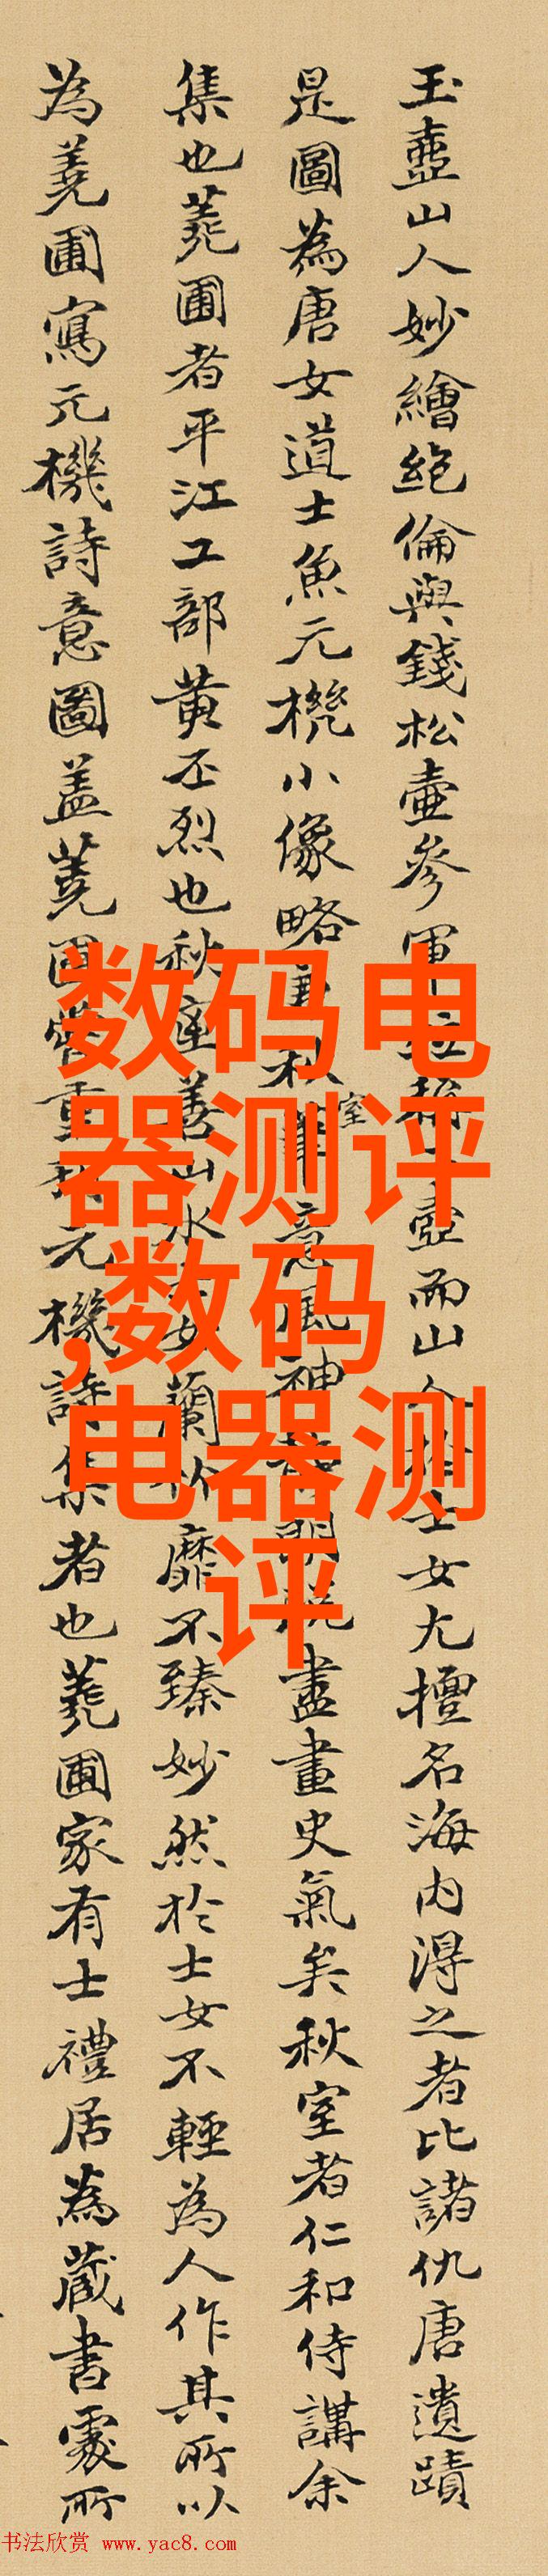 玉壺山人妙繪絶倫與錢松壺參軍女尤擅名海内得之者比諸仇唐遺蹟
是圖為唐女道士魚元機小像略秋室意風神盡畫史氣矣秋室者仁和侍講余
集也蕘圃者平江工部黄丕烈也秋室善山水蘭竹靡不臻妙然於士女不輕為人作其所以
為蕘圃寫元機詩意圖盖蕘圃重元機詩集者也蕘圃家有士禮居為藏書處所
数码电
器测评
,数码
电器测
评
书法欣赏 www.yac8.com